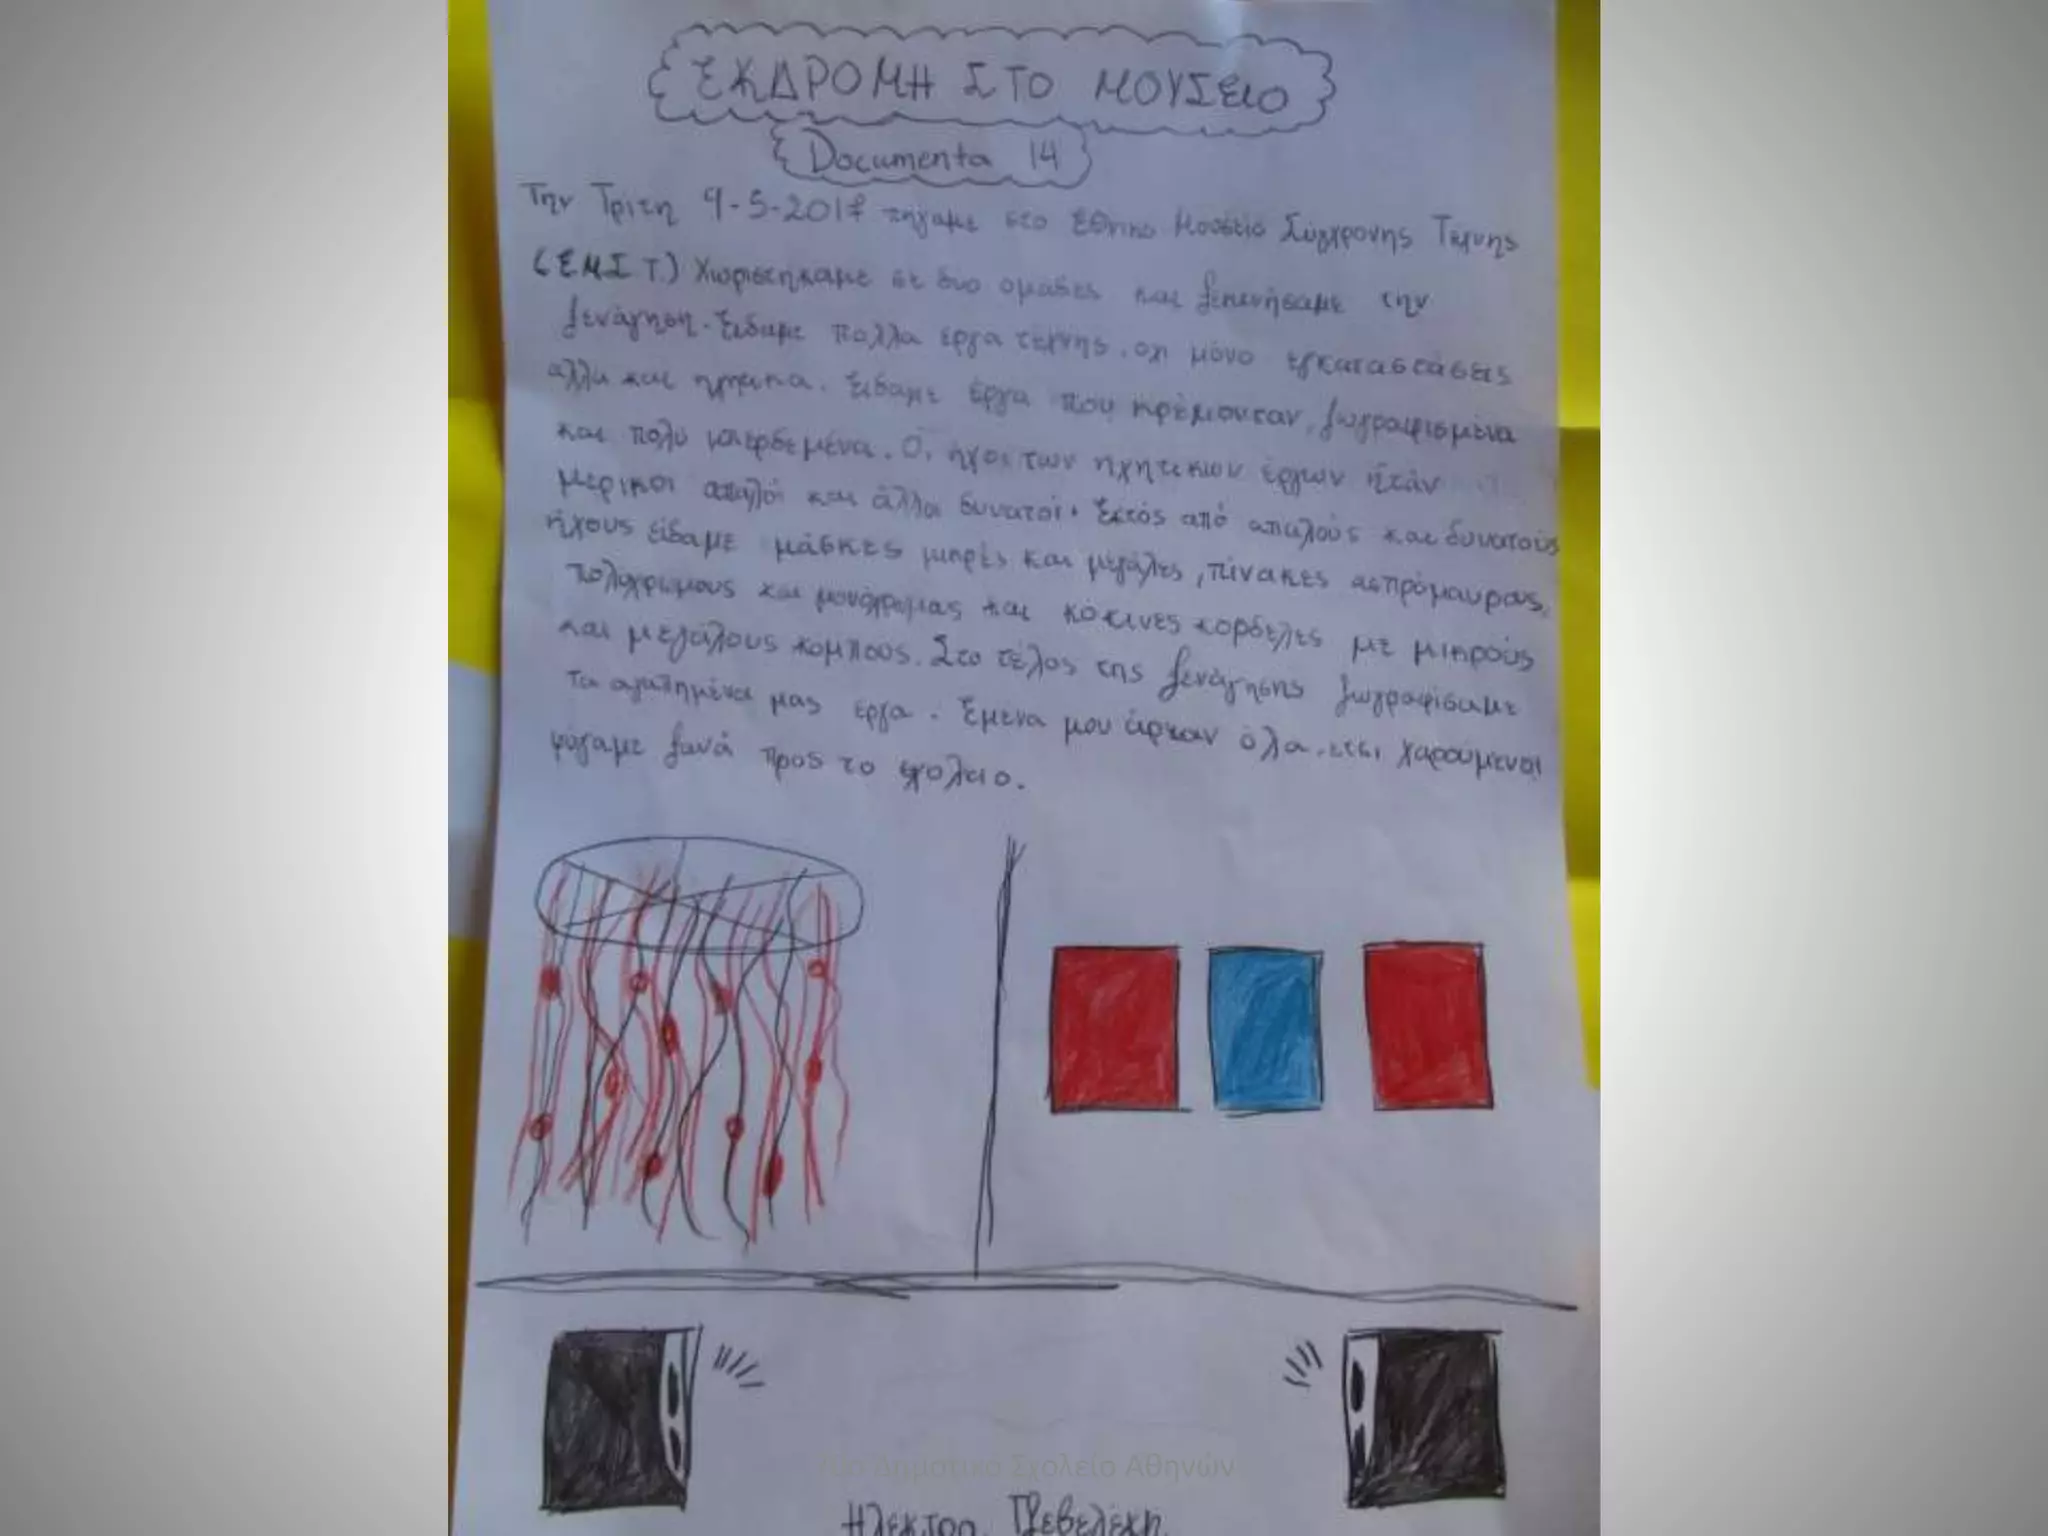 ΕΚΔΡΟΜΗ ΣΤΟ ΜΟΥΣΕΙΟ
Documenta 14
Την Τρίτη 9-5-2017 πήγαμε στο Εθνικο Μουσείο Σύγχρονης Τέχνης
(ΕΜΣΤ.) Χωριστήκαμε σε δυο ομαδες και ξεκινήσαμε την
ξενάγηση. Είδαμε πολλα εργα τέχνης. οχι μόνο εγκαταστάσεις
αλλα και ηχητικα. Είδαμε έργα που κρέμονταν, ζωγραφισμένα
και πολύ μπερδεμένα. Οι ήχοι των ηχητικών έργων ήταν
μερικοι απαλοί και άλλοι δυνατοί. Εκτός από απαλούς και δυνατούς
ήχους είδαμε μάσκες μικρές και μεγάλες, πίνακες ασπρόμαυρους,
πολυχρωμους και μονόχρωμους και κοκινες κορδελες με μικρούς
και μεγάλους κομπους. Στο τέλος της ξενάγησης ζωγραφίσαμε
τα αγαπημένα μας εργα. Εμενα μου άρεσαν όλα. ετσι χαρούμενοι
φύγαμε ξανά προς το σχολειο.
Δημοτικό Σχολείο Αθηνών
Ηλέκτρα Τζεβελέκη